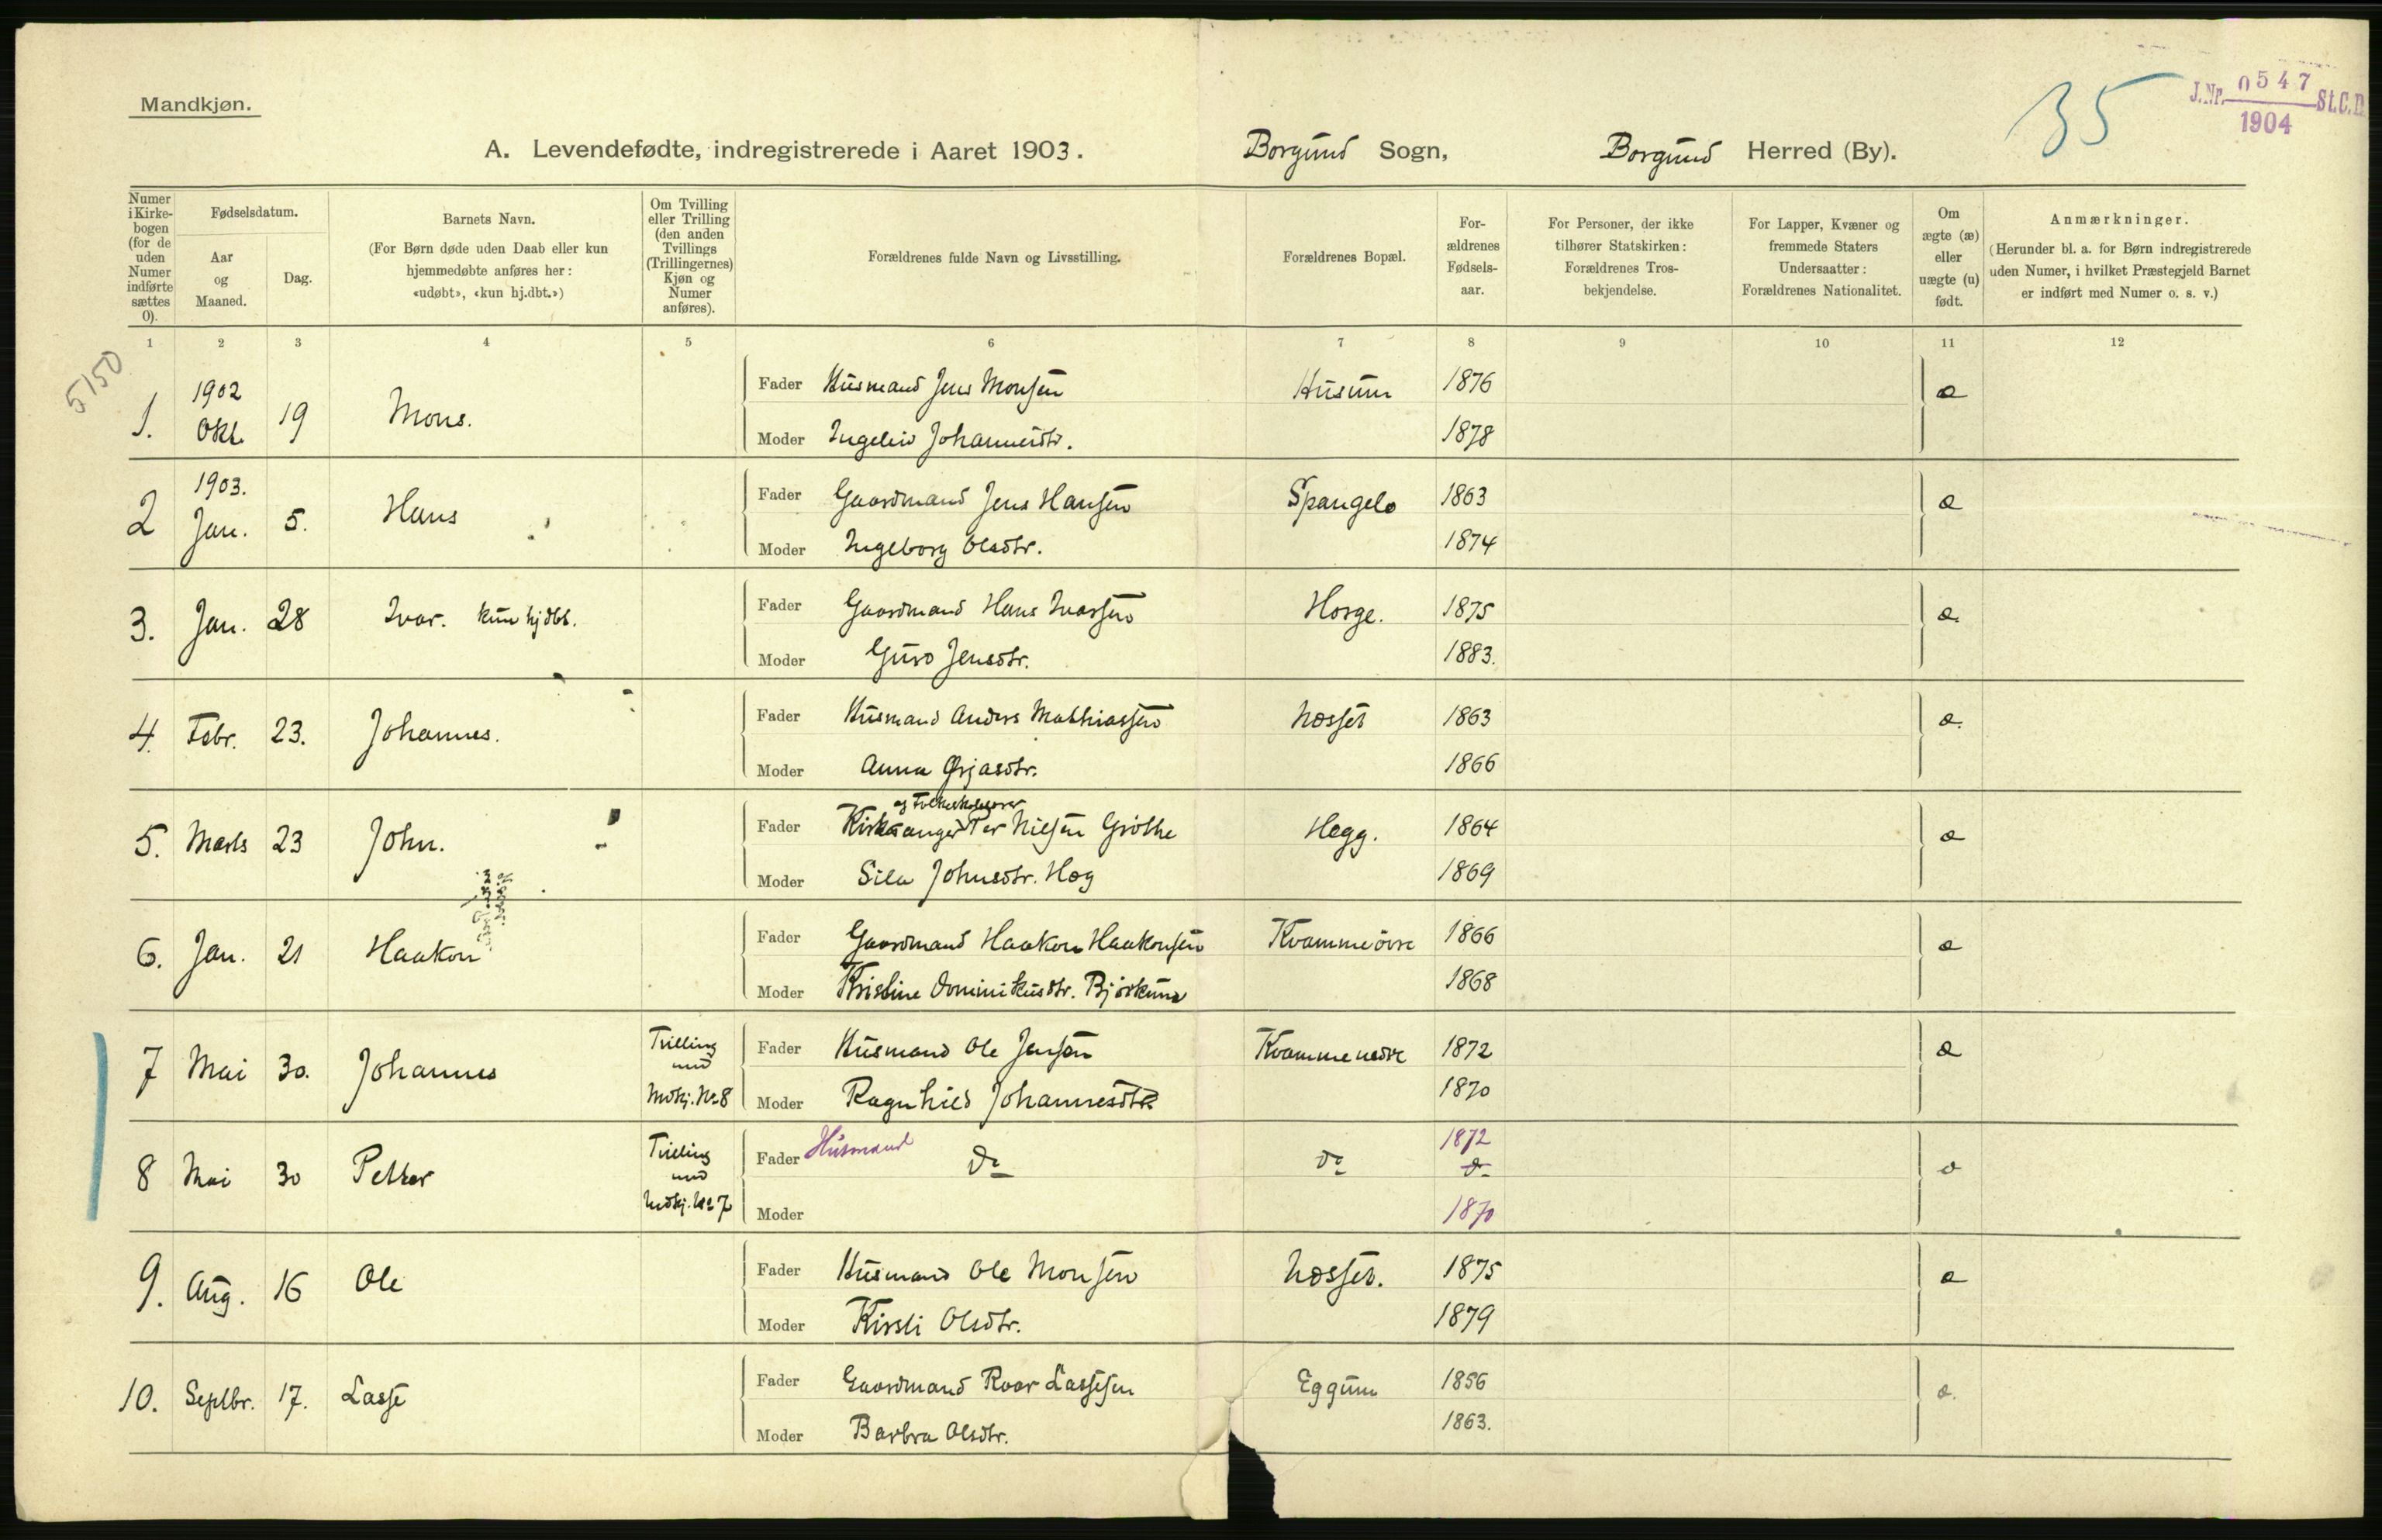 Mandkjøn.
J.Nr. 0547 St.C.B.
1904
35
A. Levendefødte, indregistrerede i Aaret 1903. Borgund Sogn, Borgund Herred (By).
Numer i Kirke- bogen (for de uden Numer indførte sættes 0).
Fødselsdatum.
Aar og Maaned.
Dag.
Barnets Navn.
(For Børn døde uden Daab eller kun hjemmedøbte anføres her: «udøbt», «kun hj.dbt.»)
Om Tvilling eller Trilling (den anden Tvillings (Trillingernes) Kjøn og Numer anføres).
Forældrenes fulde Navn og Livsstilling.
Forældrenes Bopæl.
For- ældrenes Fødsels- aar.
For Personer, der ikke tilhører Statskirken: Forældrenes Tros- bekjendelse.
For Lapper, Kvæner og fremmede Staters Undersaatter: Forældrenes Nationalitet.
Om ægte (æ) eller uægte (u) født.
Anmærkninger.
(Herunder bl. a. for Børn indregistrerede uden Numer, i hvilket Præstegjeld Barnet er indført med Numer o. s. v.)
1 2 3 4 5 6 7 8 9 10 11 12
5150
1. 1902 Okt. 19 Mons. Fader Husmand Jens Monsen Husum 1876 æ
Moder Ingeleiv Johannesdtr. 1878
2 1903. Jan. 5. Hans Fader Gaardmand Jens Hansen Spangelo 1863 æ
Moder Ingeborg Olsdtr. 1874
3. Jan. 28 Ivar. kun hjdbt. Fader Gaardmand Hans Ivarsen Horge. 1875 æ.
Moder Guro Jensdtr. 1883.
4. Febr. 23. Johannes. Fader Husmand Anders Mathiassen Næsset 1863 æ.
Moder Anna Ørjasdtr. 1866
og Folkeskolelærer
5. Marts 23 John. Fader Kirkesanger Per Nilsen Grøthe Hegg. 1864 æ
Moder Sila Johnsdtr. Hæg 1869
6. Jan. 21 Haakon Fader Gaardmand Haakon Haakonsen Kvamme øvre 1866 æ
Moder Kristine Dominikusdtr. Bjørkum 1868
7 Mai 30. Johannes Tvilling med Mdkj. No 8 Fader Husmand Ole Jensen Kvamme nedre 1872 æ
Moder Ragnhild Johannesdtr. 1870
8 Mai 30 Petter Tvilling med Mdkj. No 7 Fader Husmand Do Do 1872 Do æ
Moder 1870
9. Aug. 16 Ole Fader Husmand Ole Monsen Næsset. 1875 æ
Moder Kirsti Olsdtr. 1879
10. Septbr. 17. Lasse Fader Gaardmand Roar Lassesen Eggum 1856 æ.
Moder Barbra Olsdtr. 1863.